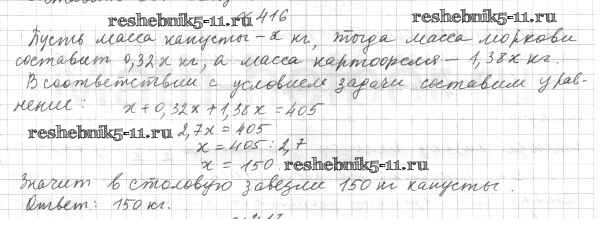 416
reshebnik5-11.ru reshebnik5-11.ru
Пусть масса капусты - x кг, тогда масса моркови
составит 0,32x кг, а масса картофеля - 1,38x кг.
В соответствии с условием задачи составим урав-
нение: x + 0,32x + 1,38x = 405
reshebnik5-11.ru 2,7x = 405
x = 405 : 2,7
x = 150 reshebnik5-11.ru
Значит в столовую завезли 150 кг капусты.
Ответ: 150 кг.